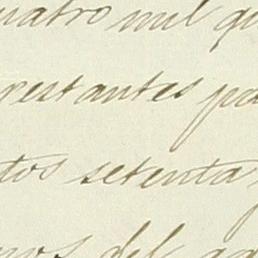 uatro mil qu
restantes pa
tos setenta y
nos del